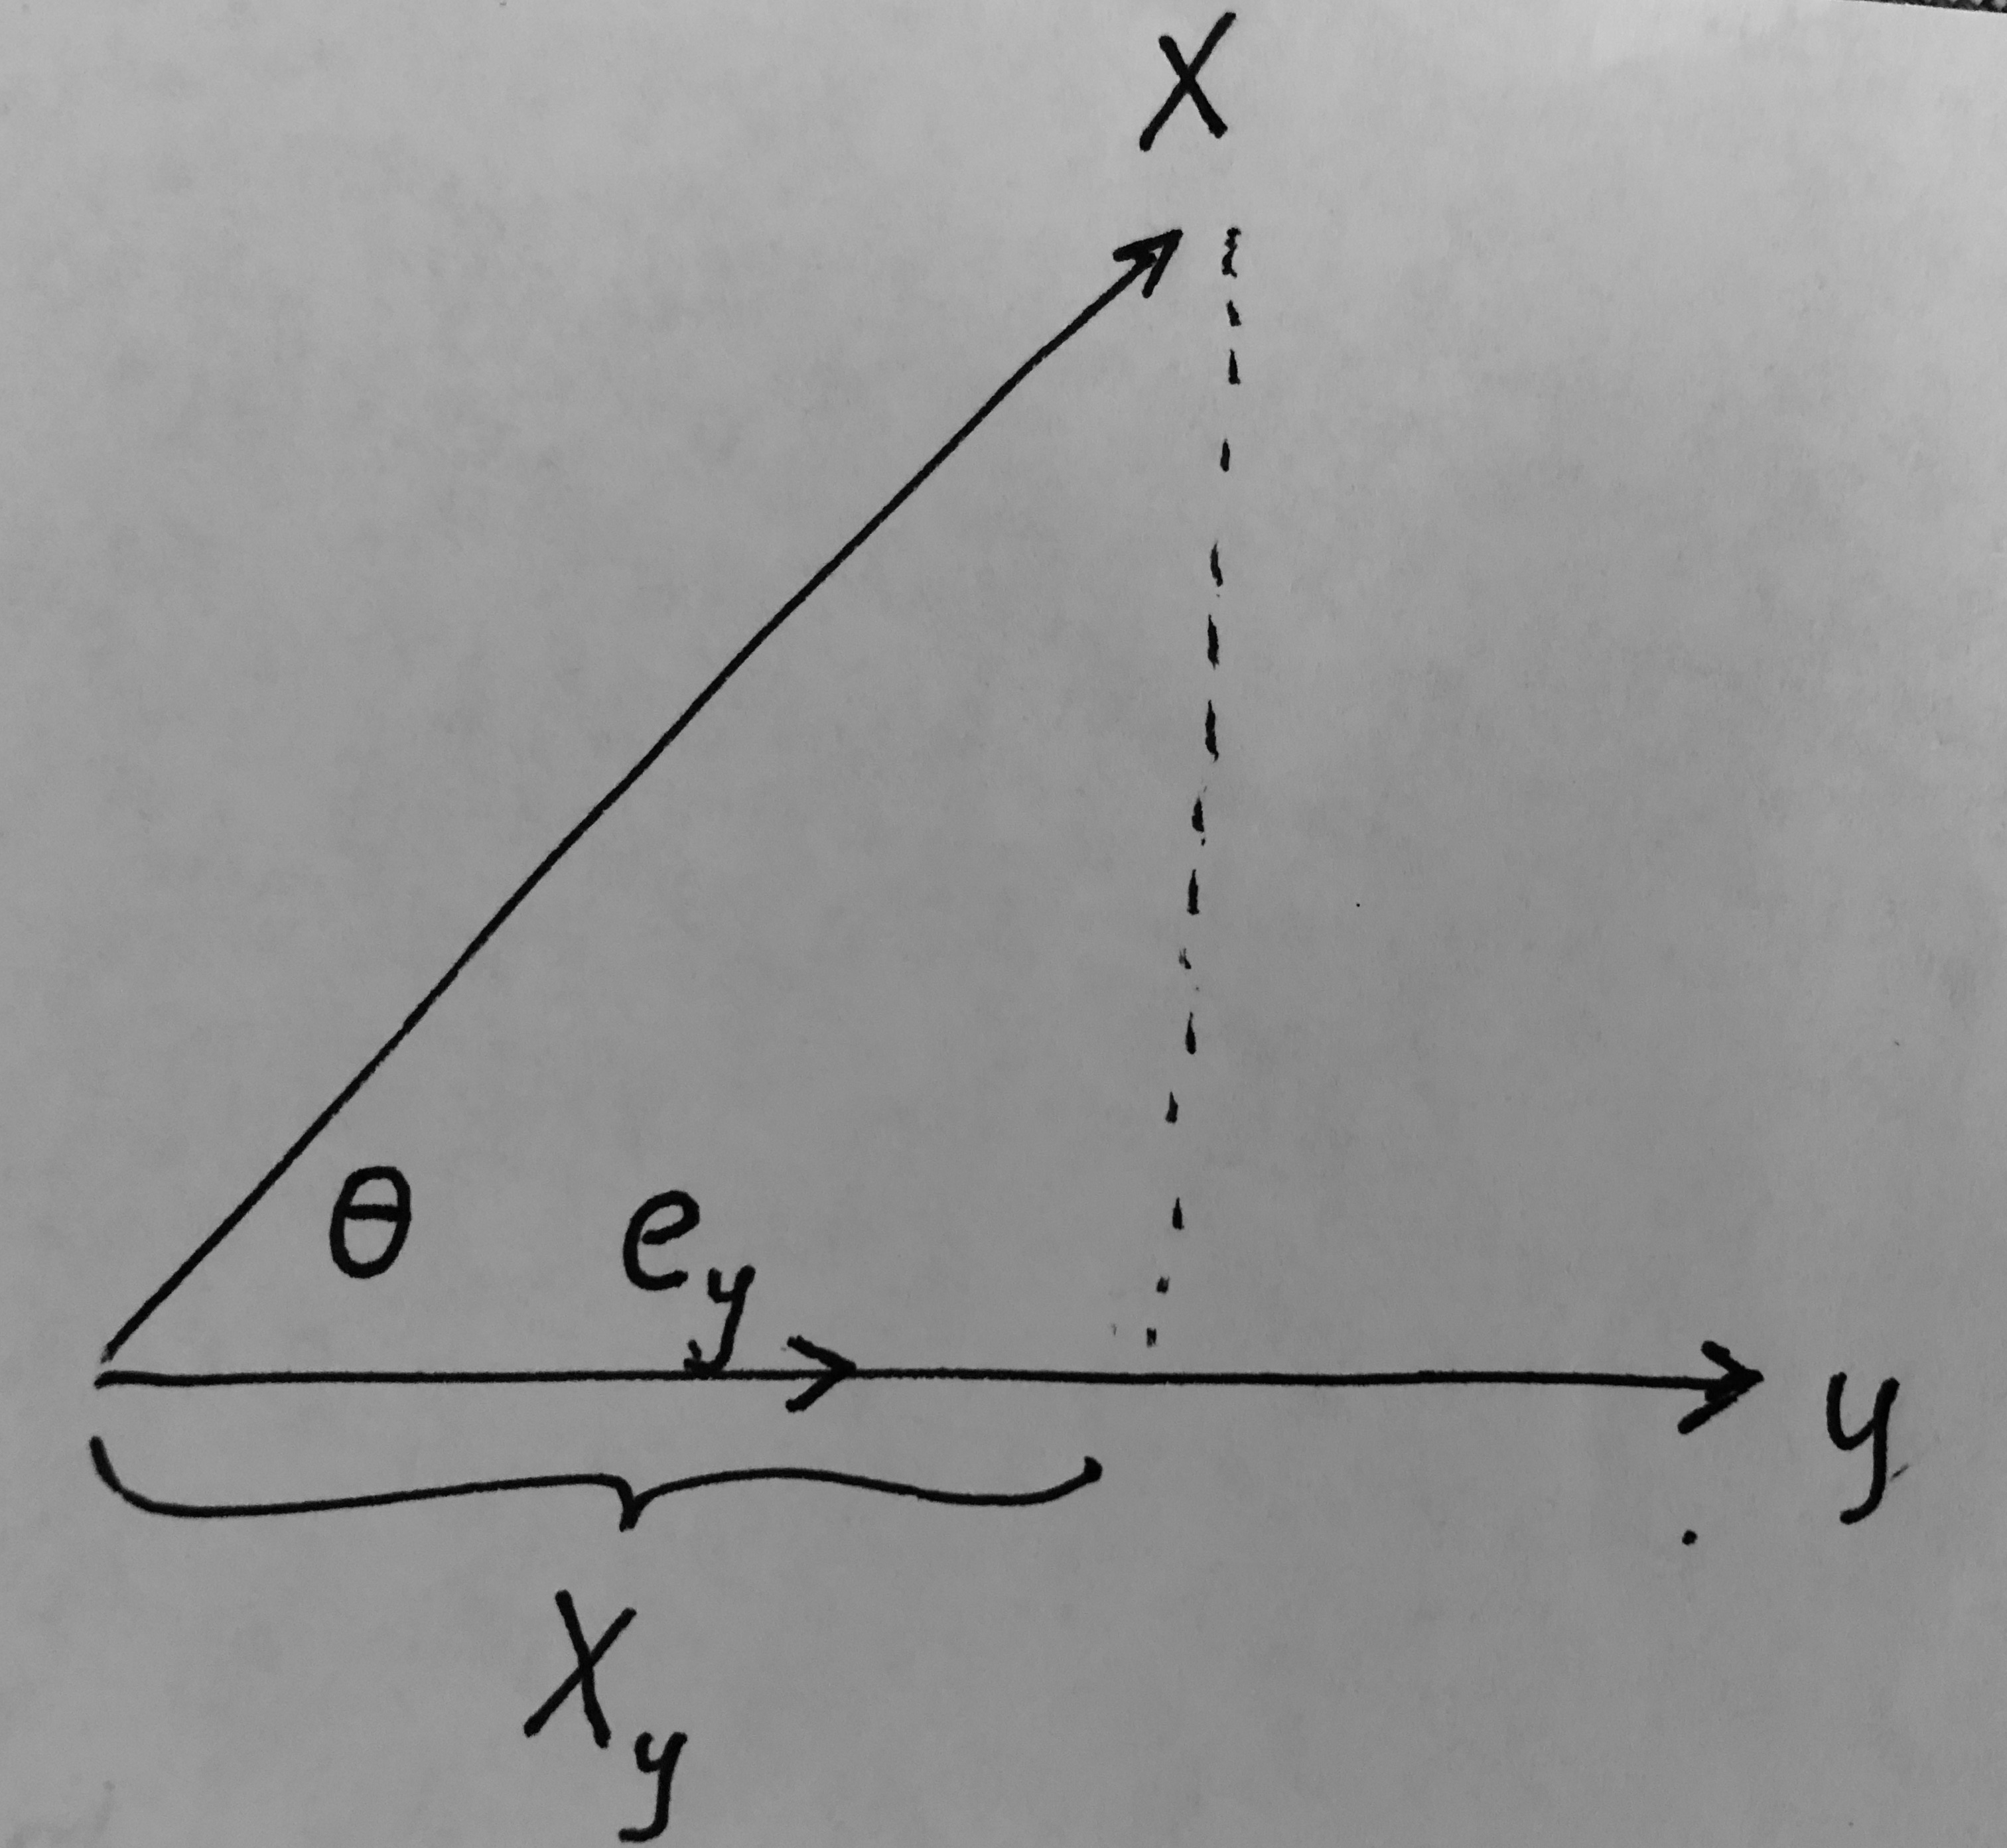 X
θ
e_y
y
X_y